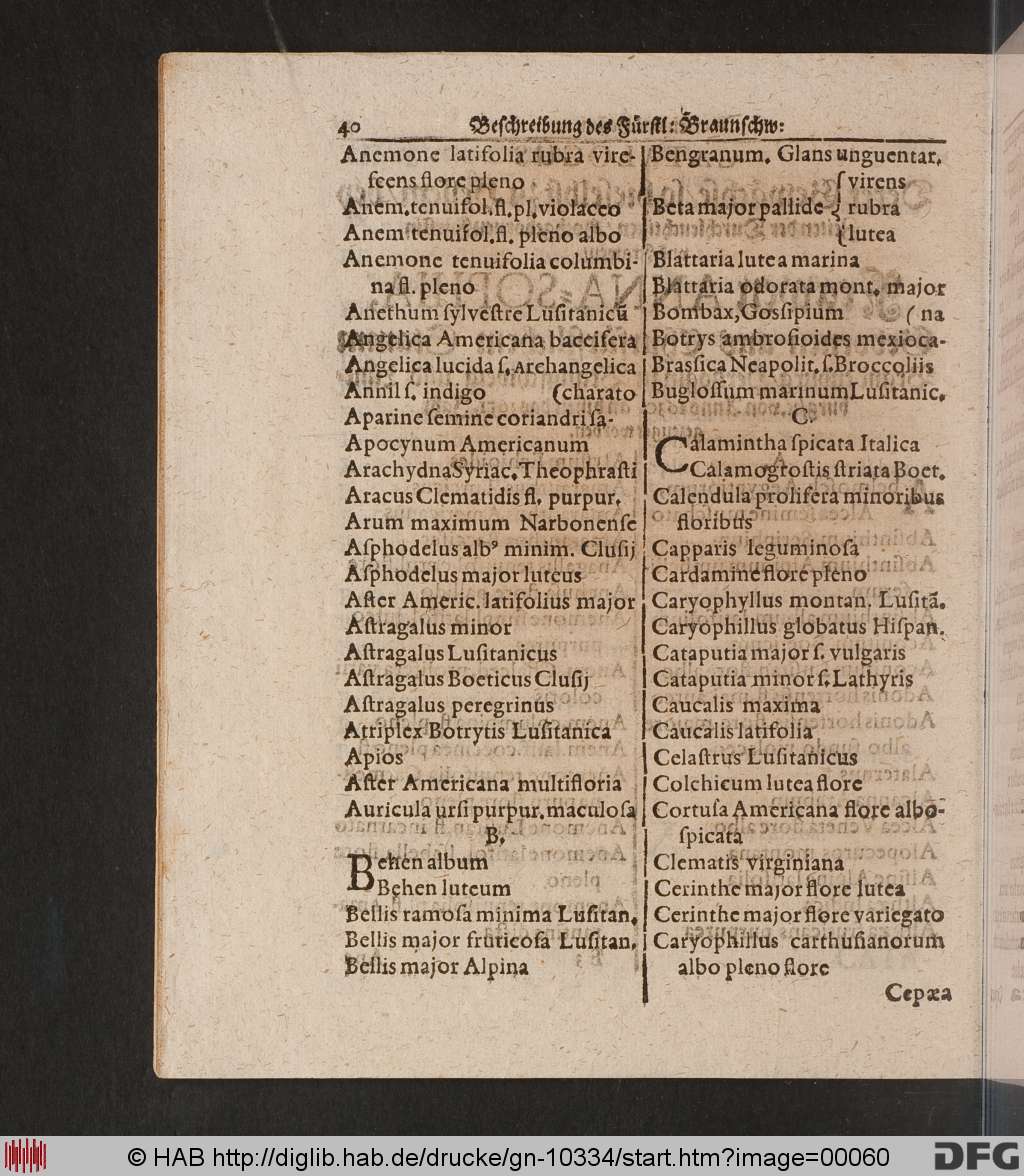 40 Beſchreibung des Fürſtl: Braunſchw:
Anemone latifolia rubra vire-
ſcens flore pleno
Anem. tenuifol. fl. pl. violaceo
Anem tenuifol. fl. pleno albo
Anemone tenuifolia columbi-
na fl. pleno
Anethum ſylveſtre Luſitanicũ
Angelica Americana baccifera
Angelica lucida ſ. Archangelica
Annil ſ. indigo (charato
Aparine ſemine coriandri ſa-
Apocynum Americanum
Arachydna Syriac. Theophraſti
Aracus Clematidis fl. purpur.
Arum maximum Narbonenſe
Aſphodelus albꝰ minim. Cluſij
Aſphodelus major luteus
Aſter Americ. latifolius major
Aſtragalus minor
Aſtragalus Luſitanicus
Aſtragalus Boeticus Cluſij
Aſtragalus peregrinus
Atriplex Botrytis Luſitanica
Apios
Aſter Americana multifloria
Auricula urſi purpur. maculoſa
B.
Behen album
Behen luteum
Bellis ramoſa minima Luſitan.
Bellis major fruticoſa Luſitan.
Bellis major Alpina
Bengranum. Glans unguentar.
virens
Beta major pallide { rubra
lutea
Blattaria lutea marina
Blattaria odorata mont. major
Bombax, Gosſipium (na
Botrys ambroſioides mexioca-
Brasſica Neapolit. ſ. Broccoliis
Bugloſſum marinum Luſitanic.
C.
Calamintha ſpicata Italica
Calamogroſtis ſtriata Boet.
Calendula prolifera minoribus
floribus
Capparis leguminoſa
Cardamine flore pleno
Caryophyllus montan. Luſitã.
Caryophillus globatus Hiſpan.
Cataputia major ſ. vulgaris
Cataputia minor ſ. Lathyris
Caucalis maxima
Caucalis latifolia
Celaſtrus Luſitanicus
Colchicum lutea flore
Cortuſa Americana flore albo-
ſpicata
Clematis virginiana
Cerinthe major flore lutea
Cerinthe major flore variegato
Caryophillus carthuſianorum
albo pleno flore
Cepæa
© HAB http://diglib.hab.de/drucke/gn-10334/start.htm?image=00060
DFG